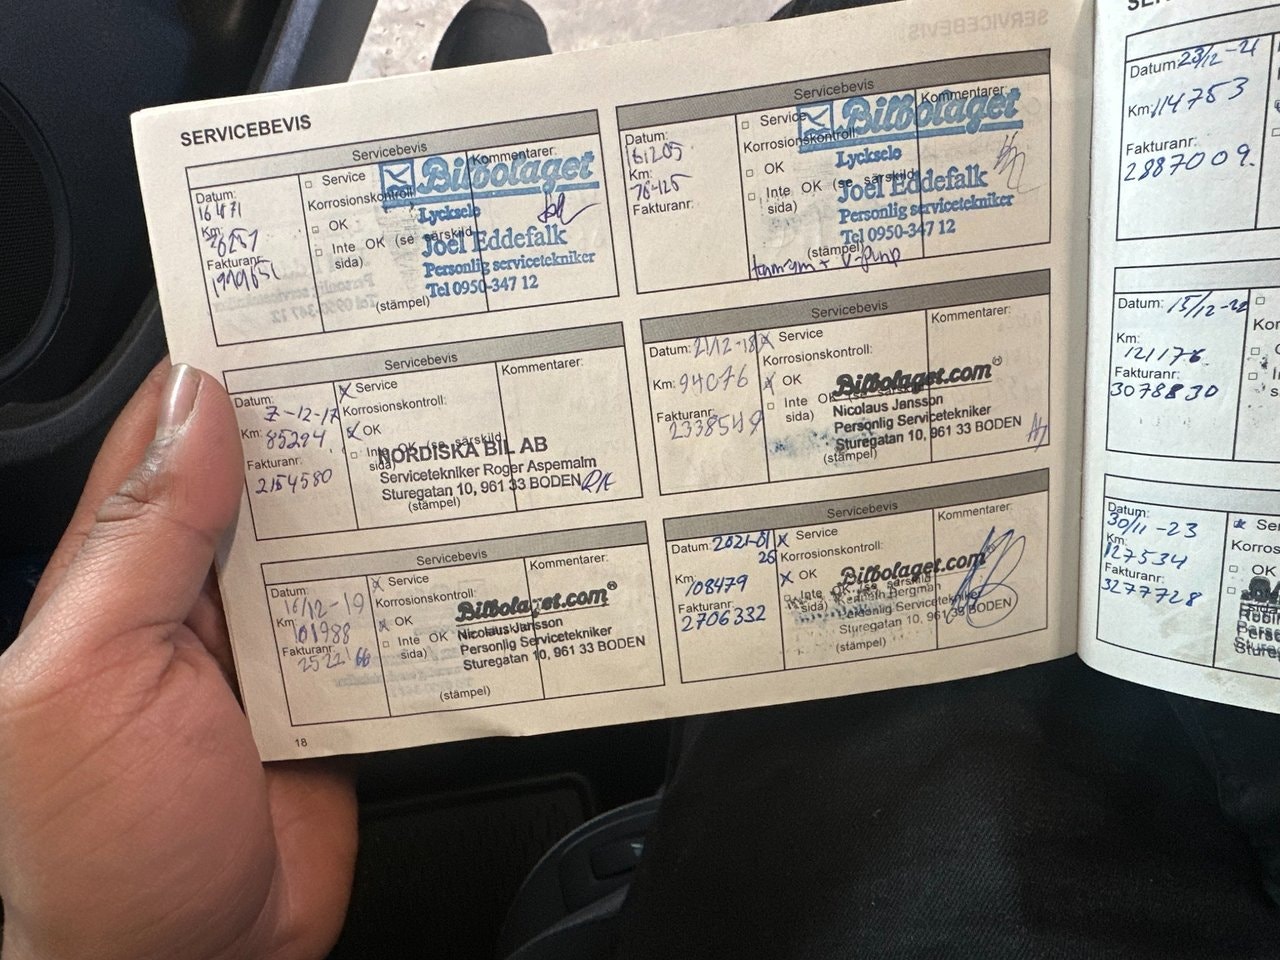 SERVICEBEVIS
Servicebevis
Datum:
Km:
Fakturanr:
Service
Korrosionskontroll:
OK
Inte OK (se särskild
sida)
Kommentarer:
Bilbolaget
Lycksele
Joel Eddefalk
Personlig servicetekniker
Tel 0950-347 12
(stämpel)
Servicebevis
Datum:
161205
Km:
76425
Fakturanr:
Service
Korrosionskontroll:
OK
Inte OK (se särskild
sida)
Kommentarer:
Bilbolaget
Lycksele
Joel Eddefalk
Personlig servicetekniker
Tel 0950-347 12
(stämpel)
Servicebevis
Datum:
7-12-17
Km: 85294
Fakturanr:
2154580
X Service
Korrosionskontroll:
X OK
Inte OK (se särskild
sida)
Kommentarer:
NORDISKA BIL AB
Servicetekniker Roger Aspemalm
Sturegatan 10, 961 33 BODEN RA
(stämpel)
Servicebevis
Datum: 21/12-18
Km: 94076
Fakturanr:
2338549
X Service
Korrosionskontroll:
X OK
Inte OK (se särskild
sida)
Kommentarer:
Bilbolaget.com®
Nicolaus Jansson
Personlig Servicetekniker
Sturegatan 10, 961 33 BODEN
(stämpel)
Servicebevis
Datum:
16/12-19
Km:
101988
Fakturanr:
2522166
X Service
Korrosionskontroll:
X OK
Inte OK (se särskild
sida)
Kommentarer:
Bilbolaget.com®
Nicolaus Jansson
Personlig Servicetekniker
Sturegatan 10, 961 33 BODEN
(stämpel)
Servicebevis
Datum: 2021-01
26
Km:
108479
Fakturanr:
2706332
X Service
Korrosionskontroll:
X OK
Inte OK (se särskild
sida)
Kommentarer:
Bilbolaget.com®
Kenneth Bergman
Personlig Servicetekniker
Sturegatan 10, 961 33 BODEN
(stämpel)
18
Datum: 23/12-21
Km: 114753
Fakturanr:
2887009.
Datum: 15/12-22
Km:
121176
Fakturanr:
3078830
Datum:
30/11-23
Km:
127534
Fakturanr:
3277728
OK